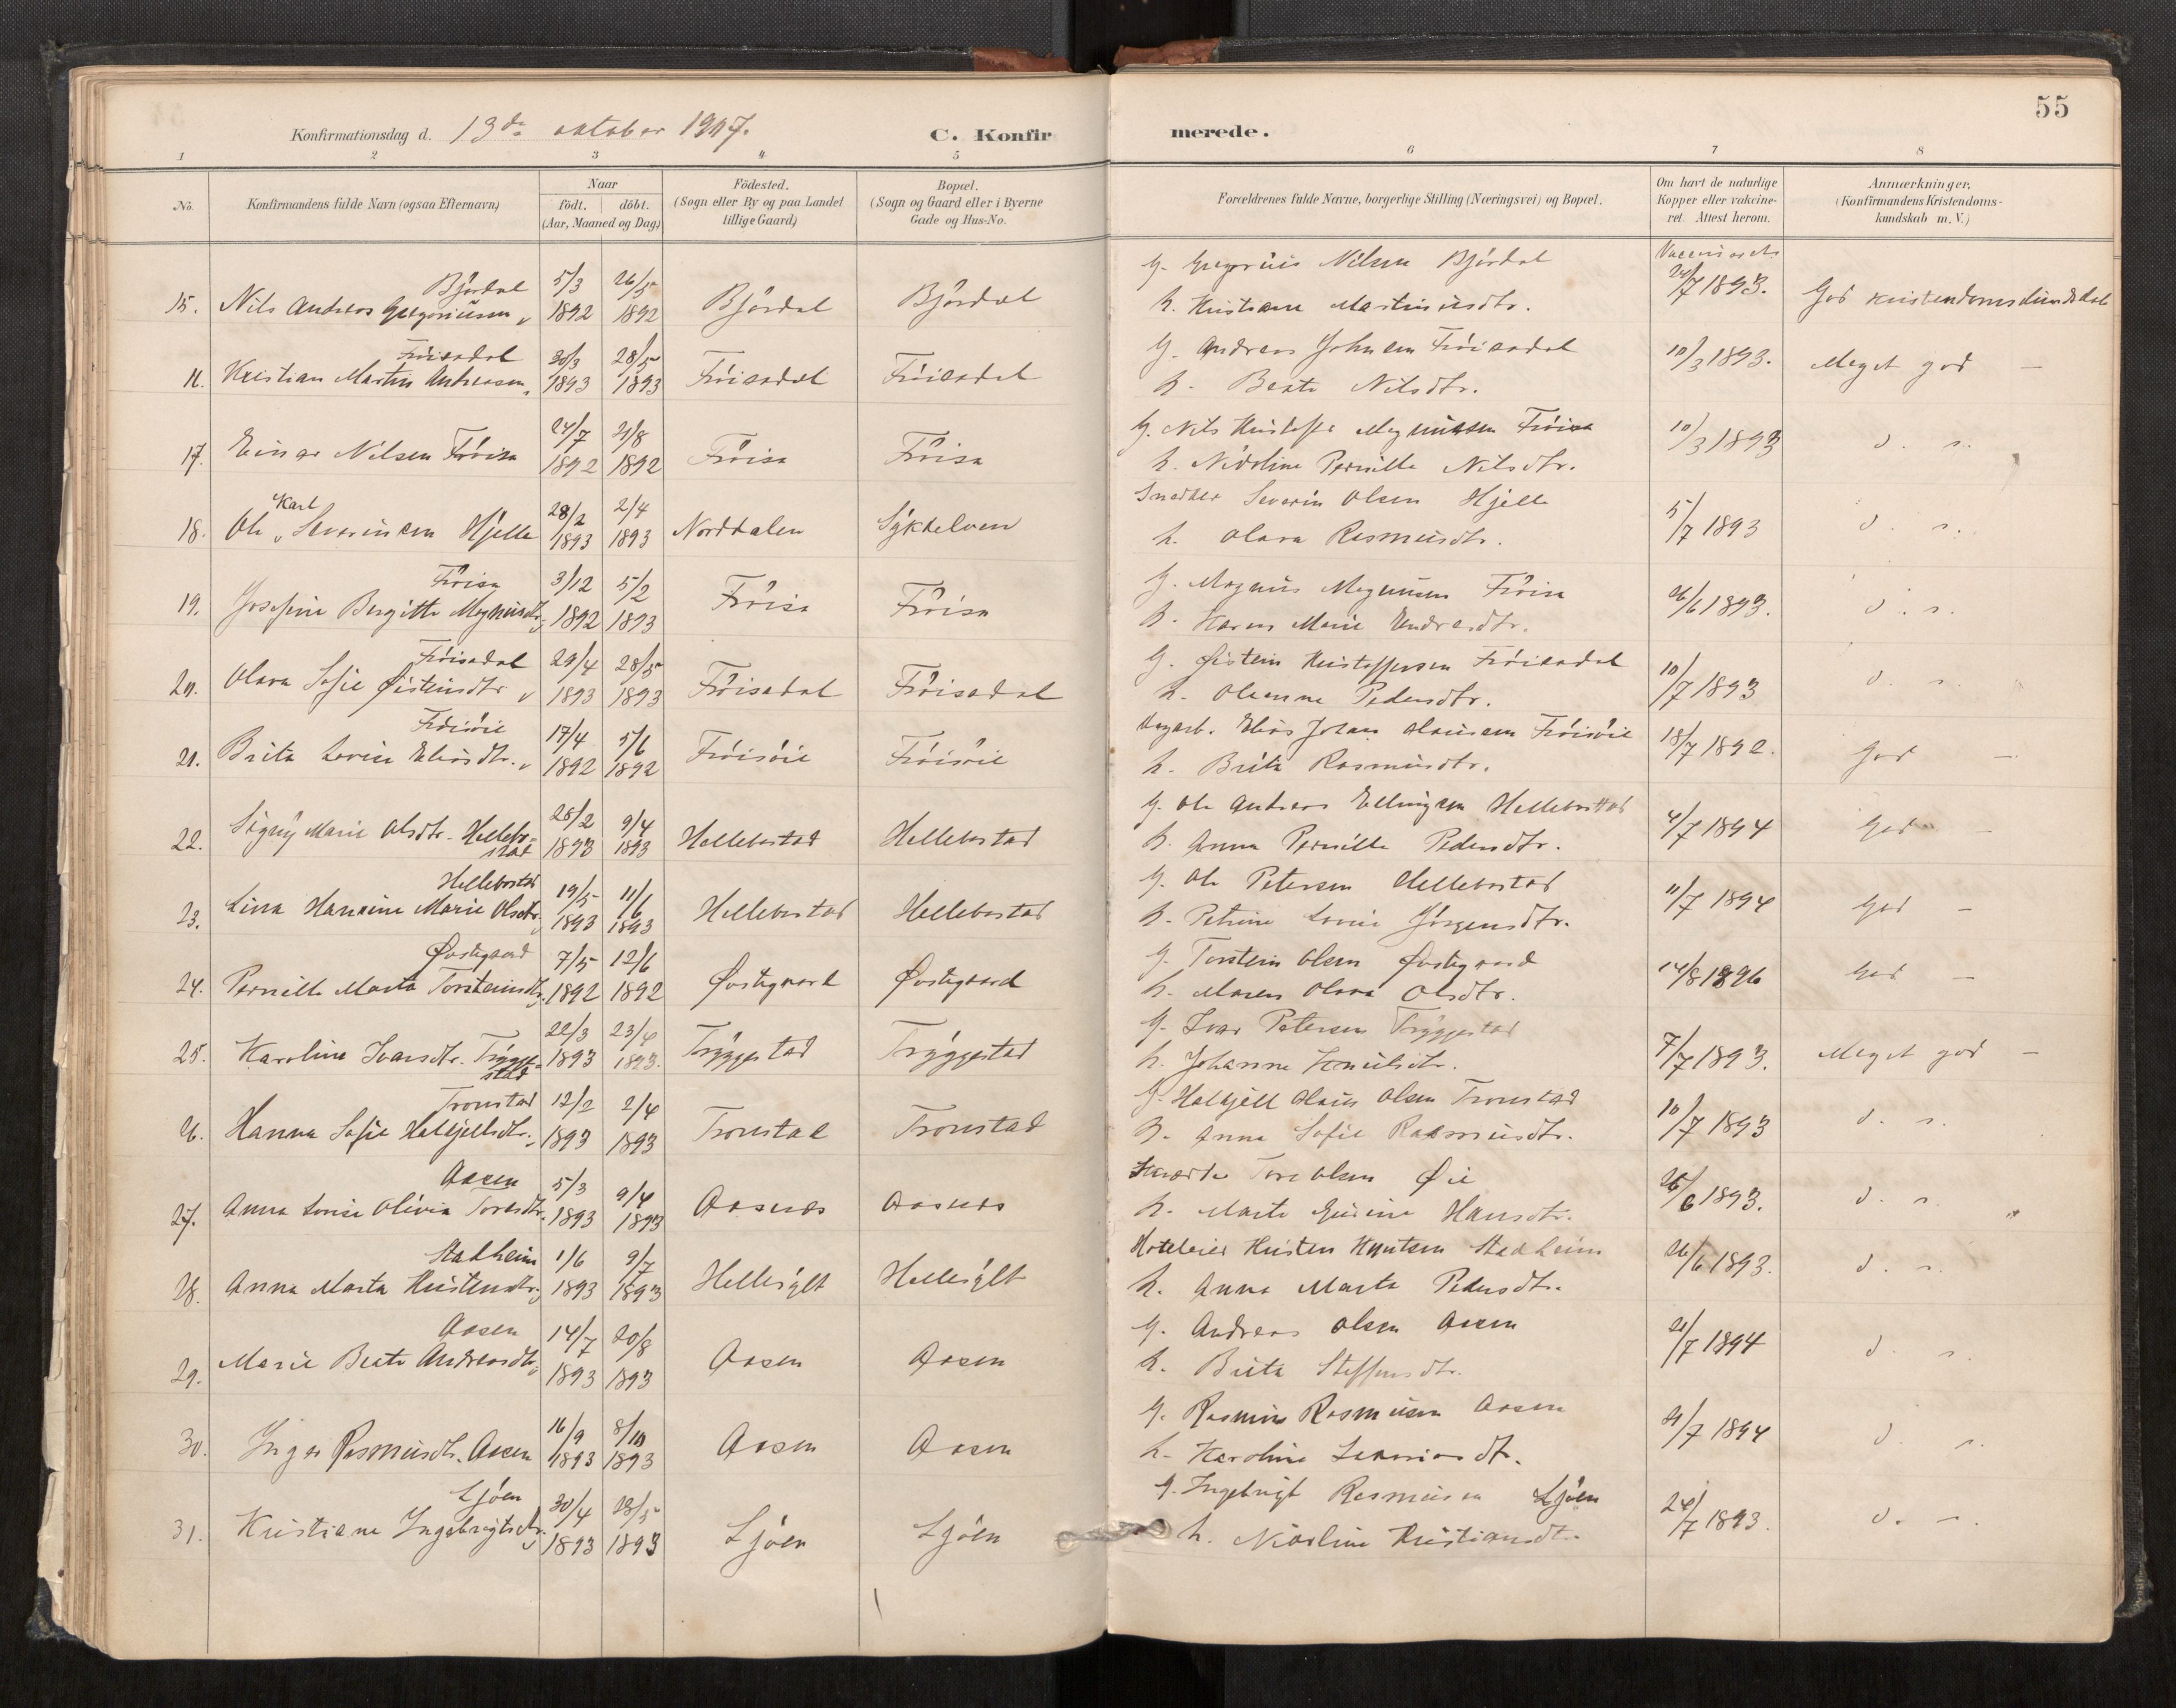 55
Konfirmationsdag d. 13de oktober 1907.
C. Konfirmerede.
1 2 3 4 5 6 7 8
No.
Konfirmandens fulde Navn (ogsaa Efternavn)
Naar
födt. döbt.
(Aar, Maaned og Dag)
Födested.
(Sogn eller By og paa Landet
tillige Gaard)
Bopæl.
(Sogn og Gaard eller i Byerne
Gade og Hus-No.
Forældrenes fulde Navne, borgerlige Stilling (Næringsvei) og Bopæl.
Om havt de naturlige
Kopper eller vakcine-
ret. Attest herom.
Anmærkninger,
(Konfirmandens Kristendoms-
kundskab m. V.)
Bjørdal 5/3 26/5 G. Gregorius Nilsen Bjørdal
15. Nils Andreas Gregoriussen 1892 1892 Bjørdal Bjørdal h. Kristiane Martinusdtr. 24/7 1893. God kristendomskundskab
Frøisadal 30/3 28/5 G. Andreas Johnsen Frøisadal
16. Kristian Martin Andreassen 1893 1893 Frøisadal Frøisadal h. Beate Nilsdtr. 10/3 1893. Meget god —
24/7 21/8 G. Nils Kristoffer Magnussen Frøisa
17. Einar Nilsen Frøisa 1892 1892 Frøisa Frøisa h. Nikoline Pernille Nilsdtr. 10/3 1893 d. s.
Karl 28/2 2/4 Snedker Severin Olsen Hjelle
18. Ole Severinsen Hjelle 1893 1893 Norddalen Sykkelven h. Olava Rasmusdtr. 5/7 1893 d. s.
Frøisa 3/12 5/2 G. Magnus Magnussen Frøisa
19. Josefine Bergitte Magnusdtr. 1892 1893 Frøisa Frøisa h. Karen Marie Endresdtr. 26/6 1893. d. s.
Frøisadal 29/4 28/5 G. Øistein Kristoffersen Frøisadal
20. Olava Sofie Øisteinsdtr 1893 1893 Frøisadal Frøisadal h. Oleanna Pedersdtr. 10/7 1893 d. s.
Frøisøie 17/4 5/6 Dagarb. Elias Johan Clausen Frøisøie
21. Brita Lovise Eliasdtr. 1892 1892 Frøisøie Frøisøie h. Brita Rasmusdtr. 18/7 1892. God —
28/2 9/4 G. Ole Andreas Ellingsen Hellebostad
22. Signy Marie Olsdtr. Hellebo- 1893 1893 Hellebostad Hellebostad h. Anna Pernille Pedersdtr. 4/7 1894 God —
stad
Hellebostad 19/5 11/6 G. Ole Petersen Hellebostad
23. Lina Hansine Marie Olsdtr. 1893 1893 Hellebostad Hellebostad h. Petrine Lovise Jørgensdtr. 11/7 1894 God —
Øvstegaard 7/5 12/6 G. Torstein Olsen Øvstegaard
24. Pernille Marta Torsteinsdtr. 1892 1892 Øvstegaard Øvstegaard h. Maren Olava Olsdtr. 14/8 1896 God —
22/3 23/4 G. Ivar Petersen Tryggestad
25. Karoline Ivarsdtr. Trygge- 1893 1893. Tryggestad Tryggestad h. Johanne Knutsdtr. 7/7 1893. Meget god —
stad
Tronstad 12/2 2/4 G. Halkjell Claus Olsen Tronstad
26. Hanna Sofie Halkjellsdtr. 1893 1893 Tronstad Tronstad h. Anna Sofie Rasmusdtr. 10/7 1893 d. s.
Aasen 5/3 9/4 Tore Olsen Øie
27. Anna Lovise Olivia Toresdtr. 1893 1893 Aasnes Aasnes h. Marte Gurine Hansdtr. 26/6 1893. d. s.
Stadheim 1/6 9/7 Hoteleier Kristen Knutsen Stadheim
28. Anna Marta Kristensdtr. 1893 1893 Hellesylt Hellesylt h. Anna Marta Pedersdtr. 26/6 1893. d. s.
Aasen 14/7 20/8 G. Andreas Olsen Aasen
29. Marie Beate Andreasdtr. 1893 1893 Aasen Aasen h. Brita Steffensdtr. 21/7 1894 d. s.
16/9 8/10 G. Rasmus Rasmussen Aasen
30. Inger Rasmusdtr. Aasen 1893 1893 Aasen Aasen h. Karoline Zakariasdtr. 21/7 1894 d. s.
Ljøen 30/4 28/5 G. Ingebrigt Rasmussen Ljøen
31. Kristiane Ingebrigtsdtr. 1893 1893 Ljøen Ljøen h. Nikoline Kristiansdtr. 24/7 1893. d. s.